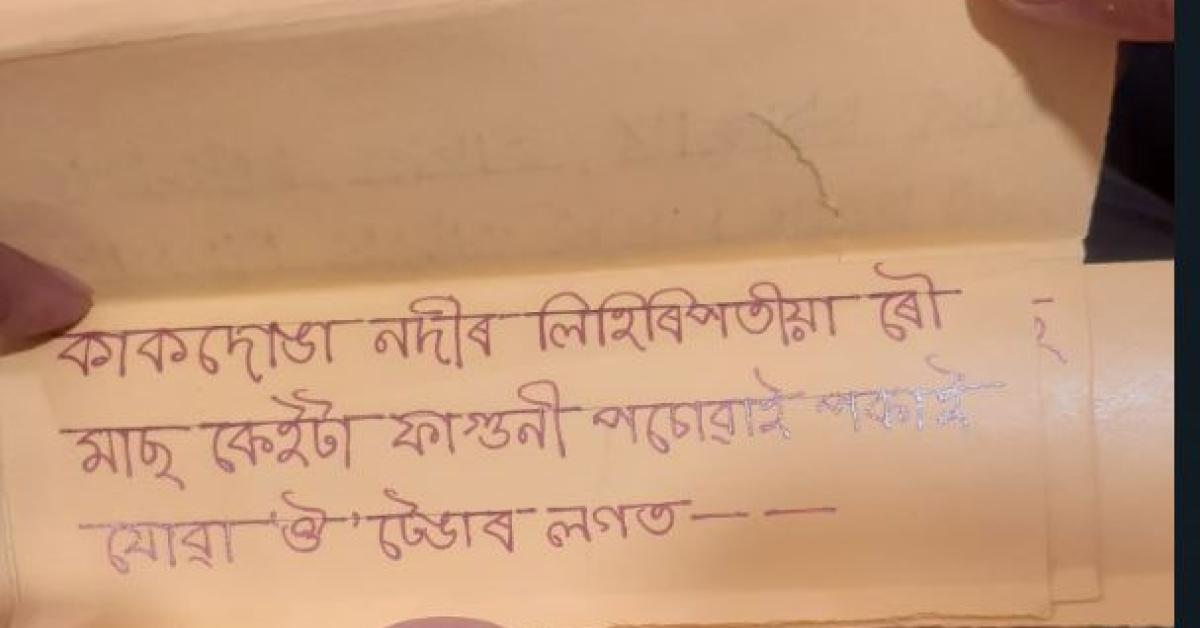 কাকদোঙা নদীৰ লিহিৰিপতীয়া ৰৌ
মাছ কেইটা ফাগুনী পচোৱাই পকাই
যোৱা 'ঔ' টেঙাৰ লগত — —